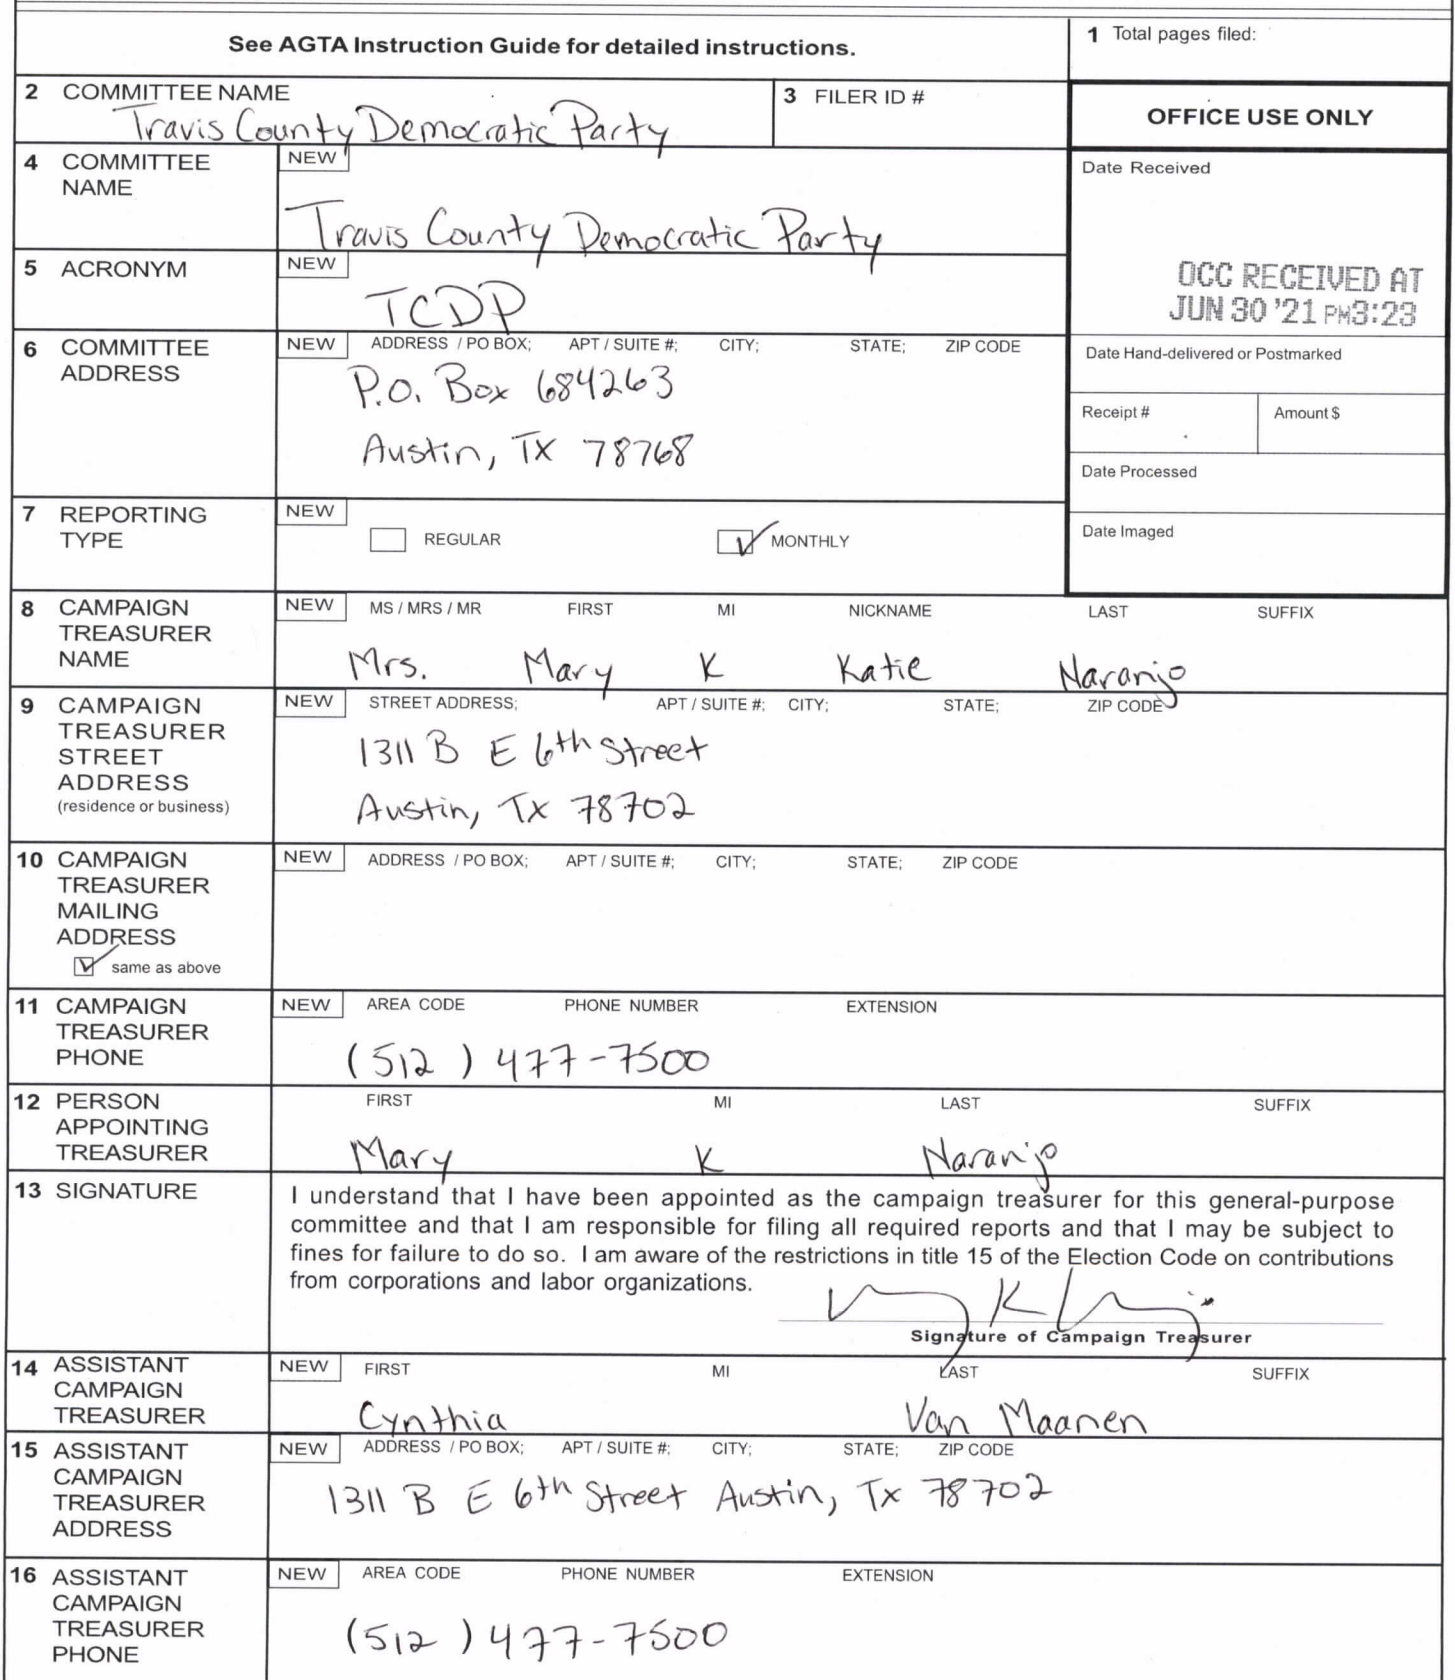 See AGTA Instruction Guide for detailed instructions.
1 Total pages filed:
2 COMMITTEE NAME
Travis County Democratic Party
3 FILER ID #
OFFICE USE ONLY
4 COMMITTEE NAME
NEW
Travis County Democratic Party
Date Received
OCC RECEIVED AT
JUN 30 '21 PM3:23
5 ACRONYM
NEW
TCDP
6 COMMITTEE ADDRESS
NEW ADDRESS / PO BOX; APT / SUITE #; CITY; STATE; ZIP CODE
P.O. Box 684263
Austin, TX 78768
Date Hand-delivered or Postmarked
Receipt # Amount $
Date Processed
Date Imaged
7 REPORTING TYPE
NEW
REGULAR MONTHLY
8 CAMPAIGN TREASURER NAME
NEW MS / MRS / MR FIRST MI NICKNAME LAST SUFFIX
Mrs. Mary K Katie Naranjo
9 CAMPAIGN TREASURER STREET ADDRESS
(residence or business)
NEW STREET ADDRESS; APT / SUITE #; CITY; STATE; ZIP CODE
1311 B E 6th Street
Austin, Tx 78702
10 CAMPAIGN TREASURER MAILING ADDRESS
same as above
NEW ADDRESS / PO BOX; APT / SUITE #; CITY; STATE; ZIP CODE
11 CAMPAIGN TREASURER PHONE
NEW AREA CODE PHONE NUMBER EXTENSION
(512) 477-7500
12 PERSON APPOINTING TREASURER
FIRST MI LAST SUFFIX
Mary K Naranjo
13 SIGNATURE
I understand that I have been appointed as the campaign treasurer for this general-purpose
committee and that I am responsible for filing all required reports and that I may be subject to
fines for failure to do so. I am aware of the restrictions in title 15 of the Election Code on contributions
from corporations and labor organizations.
Signature of Campaign Treasurer
14 ASSISTANT CAMPAIGN TREASURER
NEW FIRST MI LAST SUFFIX
Cynthia Van Maanen
15 ASSISTANT CAMPAIGN TREASURER ADDRESS
NEW ADDRESS / PO BOX; APT / SUITE #; CITY; STATE; ZIP CODE
1311 B E 6th Street Austin, Tx 78702
16 ASSISTANT CAMPAIGN TREASURER PHONE
NEW AREA CODE PHONE NUMBER EXTENSION
(512) 477-7500